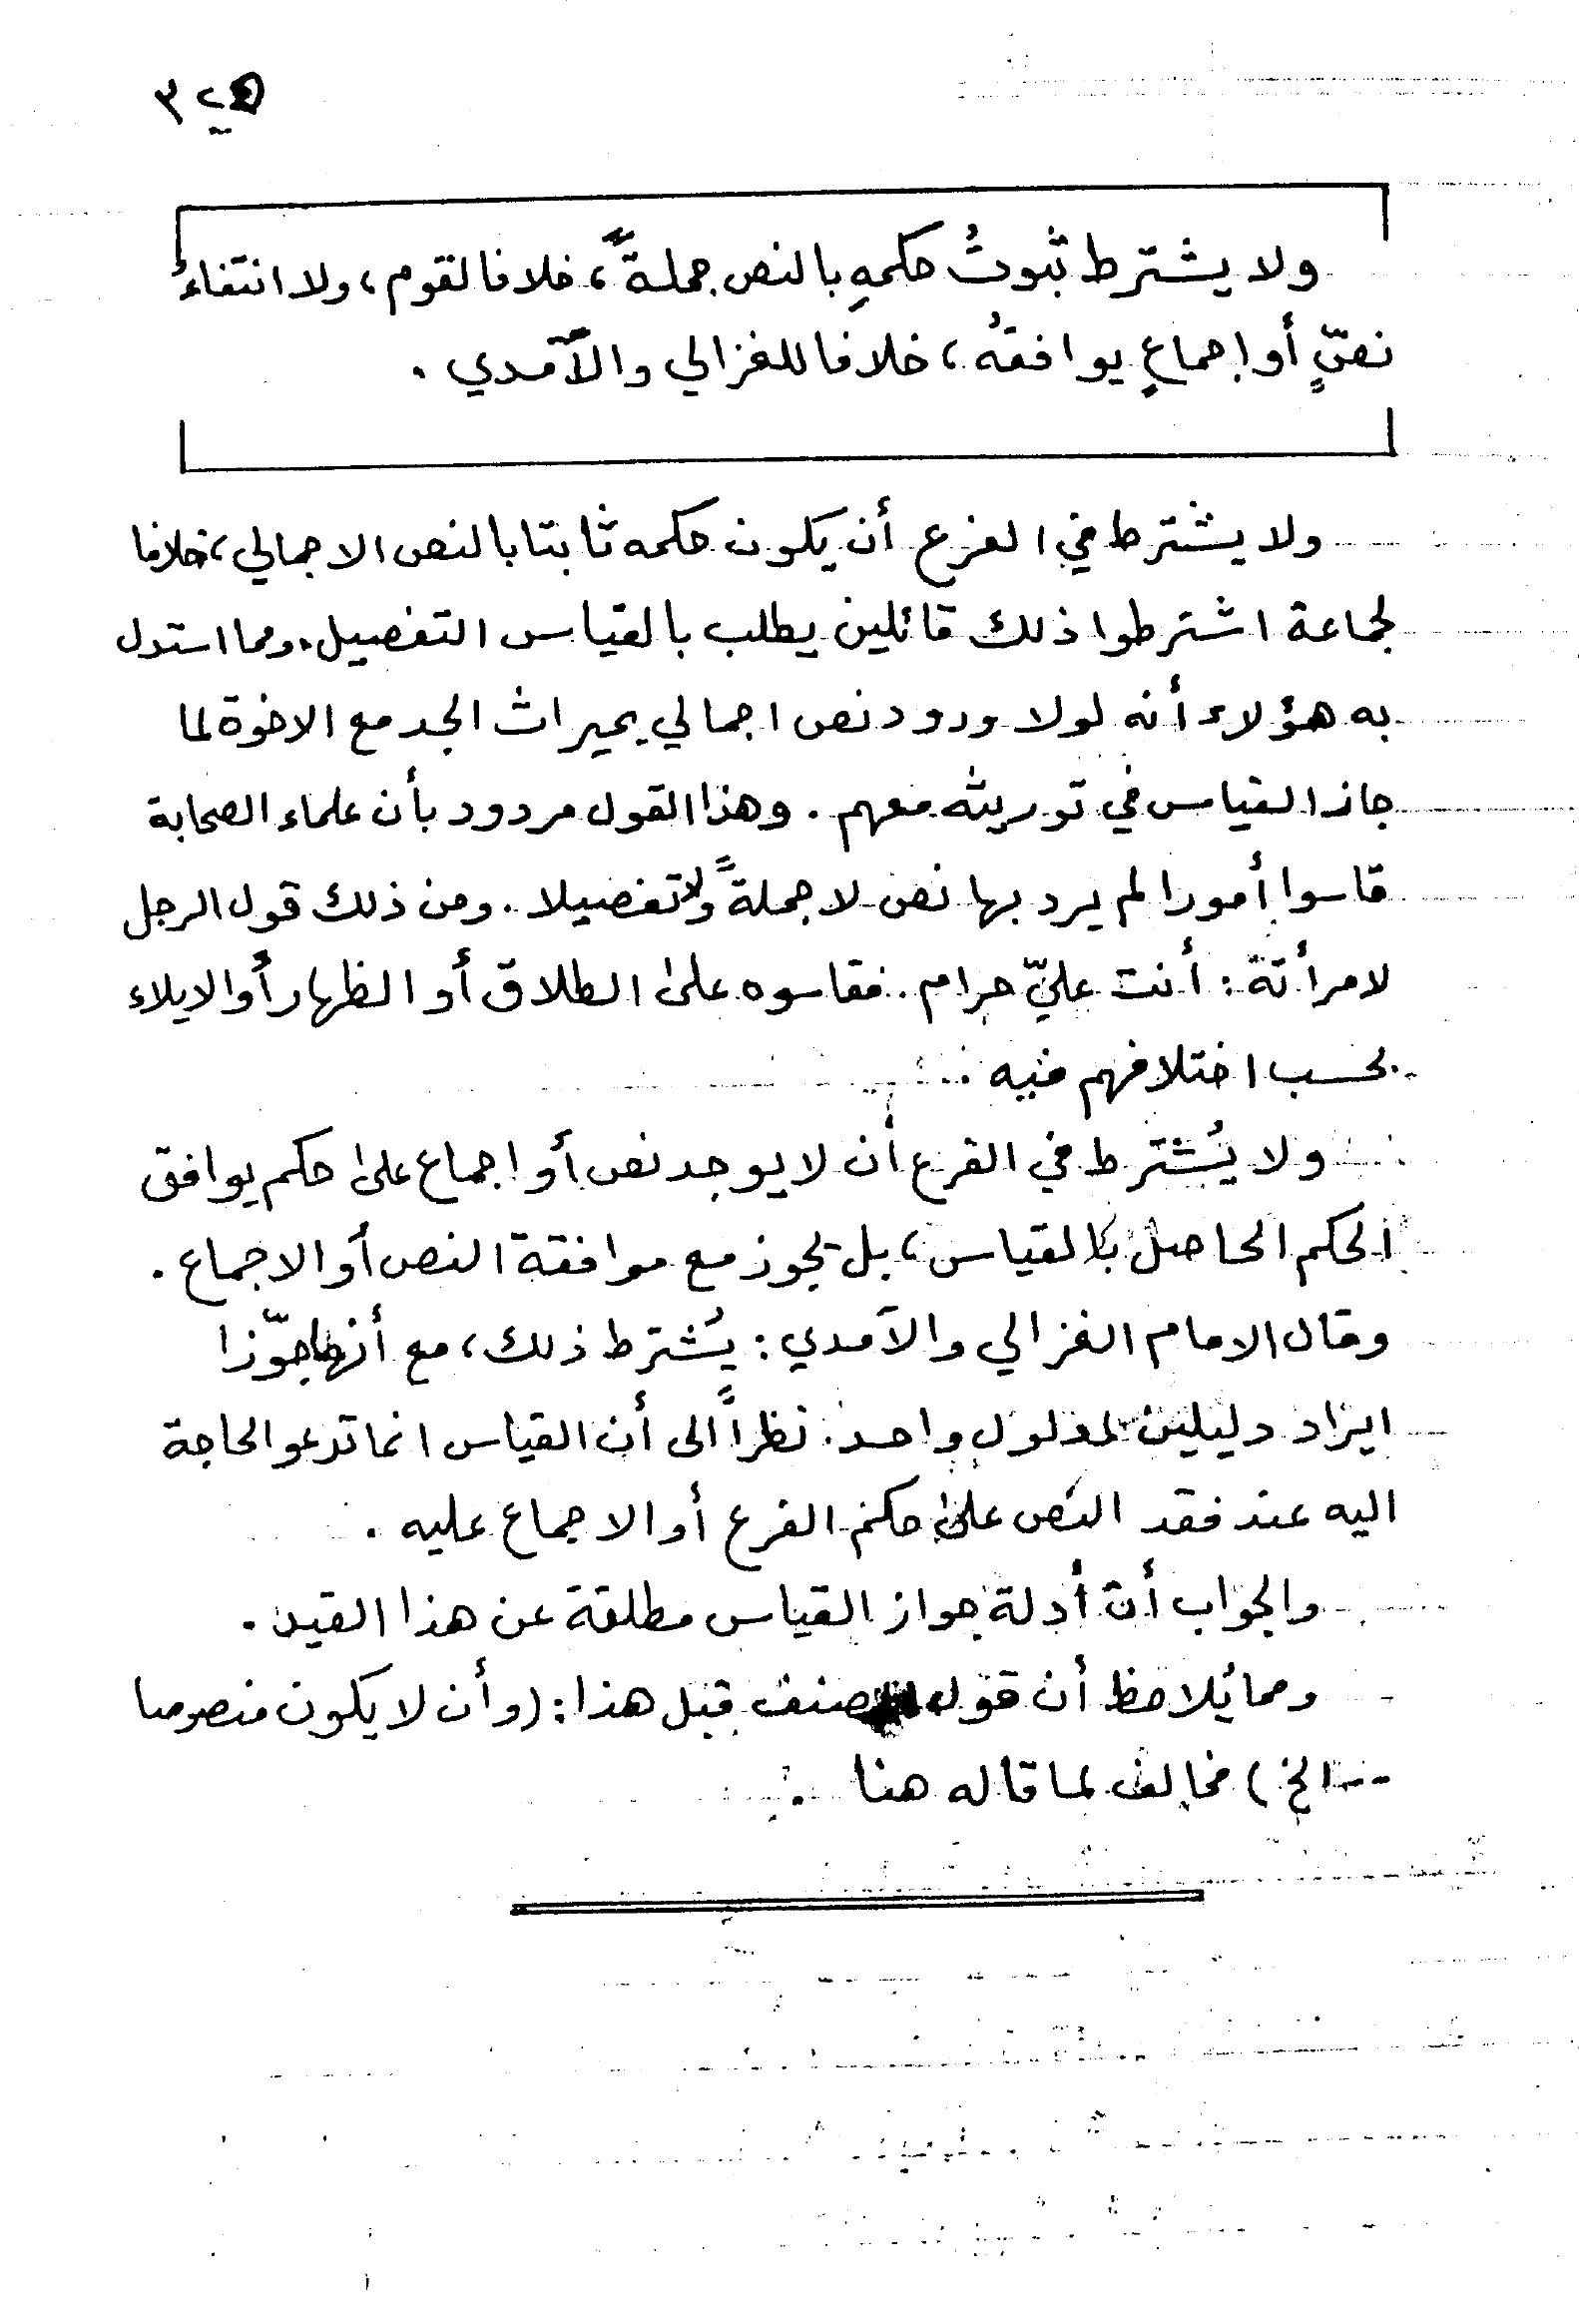 ولا يشترط ثبوتُ حكمهِ بالنص جملةً، خلافا لقوم، ولا انتفاءُ
نصٍّ أو إجماعٍ يوافقهُ، خلافا للغزالي والآمدي.
ولا يشترط في الفرع أن يكون حكمه ثابتا بالنص الاجمالي، خلافا
لجماعة اشترطوا ذلك قائلين يطلب بالقياس التفصيل. ومما استدل
به هؤلاء أنه لولا ورود نص اجمالي بميراث الجد مع الاخوة لما
جاز القياس في توريثه معهم. وهذا القول مردود بأن علماء الصحابة
قاسوا أمورا لم يرد بها نص لا جملةً ولا تفصيلا. ومن ذلك قول الرجل
لامرأتة: أنت عليّ حرام. فقاسوه على الطلاق أو الظهار أو الايلاء
بحسب اختلافهم فيه.
ولا يُشترط في الفرع أن لا يوجد نص أو اجماع على حكم يوافق
الحكم الحاصل بالقياس، بل يجوز مع موافقة النص أو الاجماع.
وقال الامام الغزالي والآمدي: يُشترط ذلك، مع أنهما جوّزا
ايراد دليلين لمدلول واحد. نظراً الى أن القياس انما تدعو الحاجة
اليه عند فقد النص على حكم الفرع أو الاجماع عليه.
والجواب أن أدلة جواز القياس مطلقة عن هذا القيد.
ومما يُلاحظ أن قول المصنف قبل هذا: (وأن لا يكون منصوصا
--الخ) مخالف لما قاله هنا.